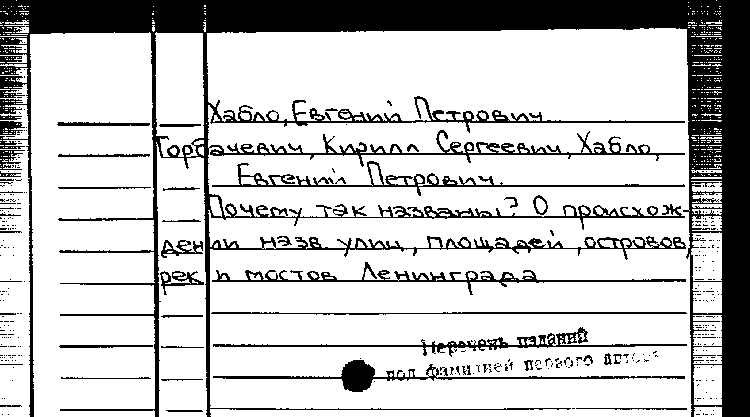 Хабло, Евгений Петрович.
Горбачевич, Кирилл Сергеевич, Хабло,
Евгений Петрович.
Почему так названы? О происхож-
дении назв. улиц, площадей, островов,
рек и мостов Ленинграда
Перечень изданий
под фамилией первого автора